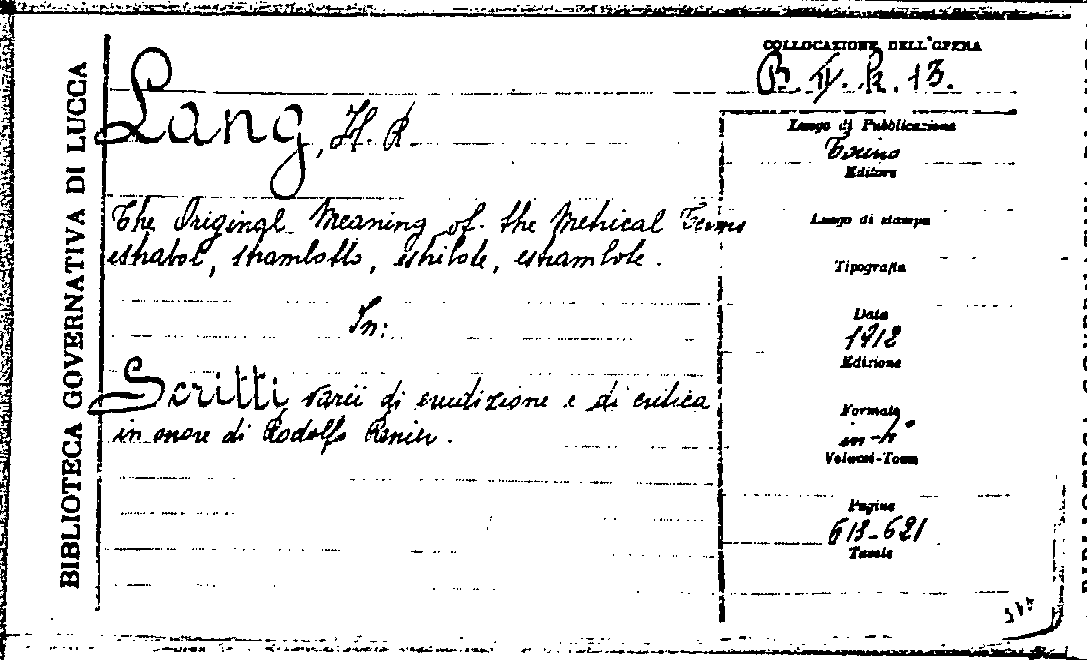 BIBLIOTECA GOVERNATIVA DI LUCCA
COLLOCAZIONE DELL'OPERA
B. II. R. 13.
Lang, H. R.
The Original Meaning of the Metrical Terms
estrabot, strambotto, estribote, estrambote.
In:
Scritti varii di erudizione e di critica
in onore di Rodolfo Renier.
Luogo di Pubblicazione
Torino
Editore
Luogo di stampa
Tipografia
Data
1912
Edizione
Formato
in-
Volumi-Tomi
Pagine
613-621
Tavole